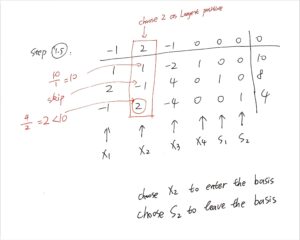 choose 2 as largest positive
step 1.5)
-1 2 -1 0 0 0 0
10/1 = 10 1 1 -2 1 0 0 10
skip 2 -1 4 0 1 0 8
4/2 = 2 < 10 -1 2 -4 0 0 1 4
x1 x2 x3 x4 S1 S2
choose x2 to enter the basis
choose S2 to leave the basis